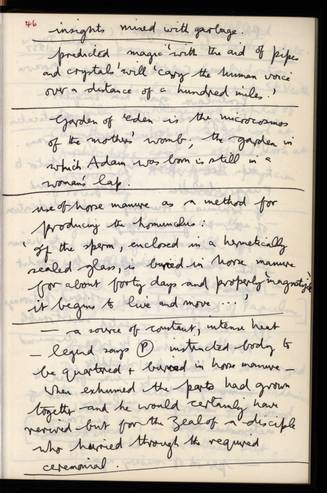 46
insights mixed with garbage.
predicted magic 'with the aid of pipes
and crystals' will 'carry the human voice
over a distance of a hundred miles.'
Garden of Eden is the microcosmos
of the mothers' womb; the garden in
which Adam was born is still in a
woman's lap.
use of horse manure as a method for
producing the homunculus:
'If the sperm, enclosed in a hermetically
sealed glass, is buried in horse manure
for about forty days and properly 'magnetized'
it begins to live and move ...'
— a source of constant, intense heat
— legend says Ⓟ instructed body to
be quartered + buried in horse manure —
when exhumed the parts had grown
together and he would certainly have
revived but for the zeal of a disciple
who hurried through the required
ceremonial.